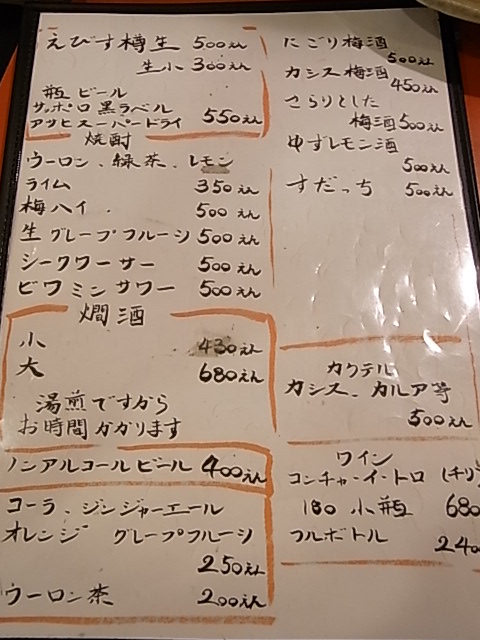 えびす樽生 500えん
生小 300えん
瓶ビール
サッポロ黒ラベル
アサヒスーパードライ 550えん
焼酎
ウーロン、緑茶、レモン
ライム 350えん
梅ハイ 500えん
生グレープフルーツ 500えん
シークワーサー 500えん
ビワミンサワー 500えん
燗酒
小 430えん
大 680えん
湯煎ですから
お時間かかります
ノンアルコールビール 400えん
コーラ、ジンジャーエール
オレンジ グレープフルーツ
250えん
ウーロン茶 200えん
にごり梅酒
500えん
カシス梅酒
450えん
さらりとした
梅酒 500えん
ゆずレモン酒
500えん
すだっち 500えん
カクテル
カシス、カルア等
500えん
ワイン
コンチャ・イ・トロ (チリ)
180 小瓶 680
フルボトル 240